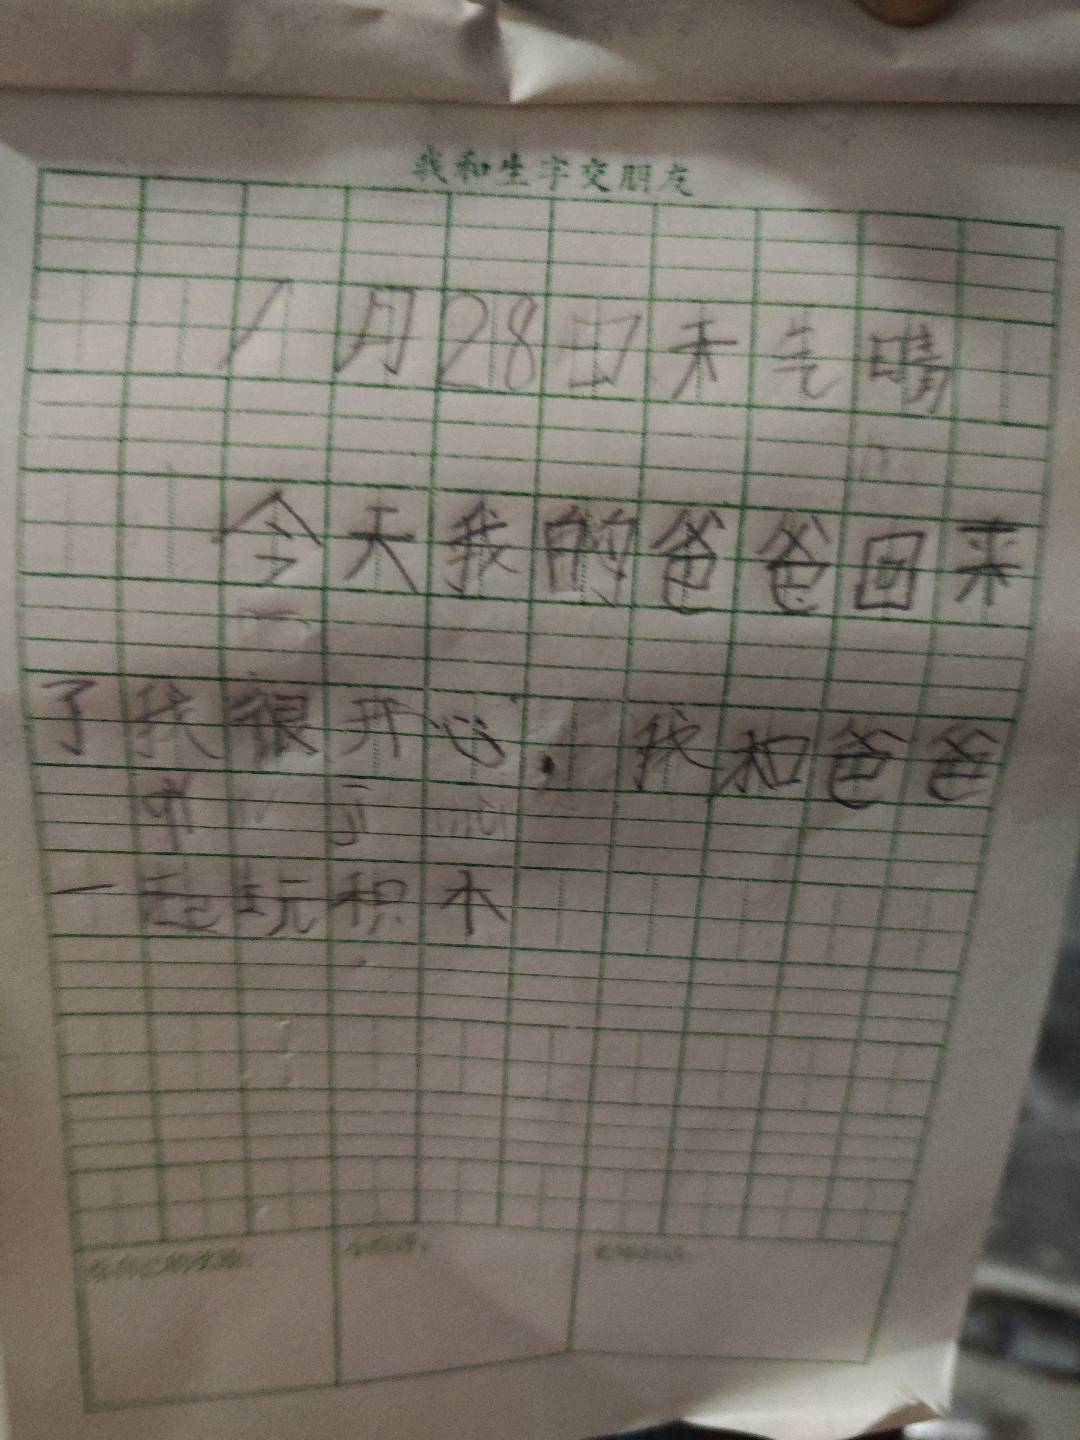 我和生字交朋友
1月28日天气晴
今天我的爸爸回来
了我很开心.我和爸爸
一起玩积木